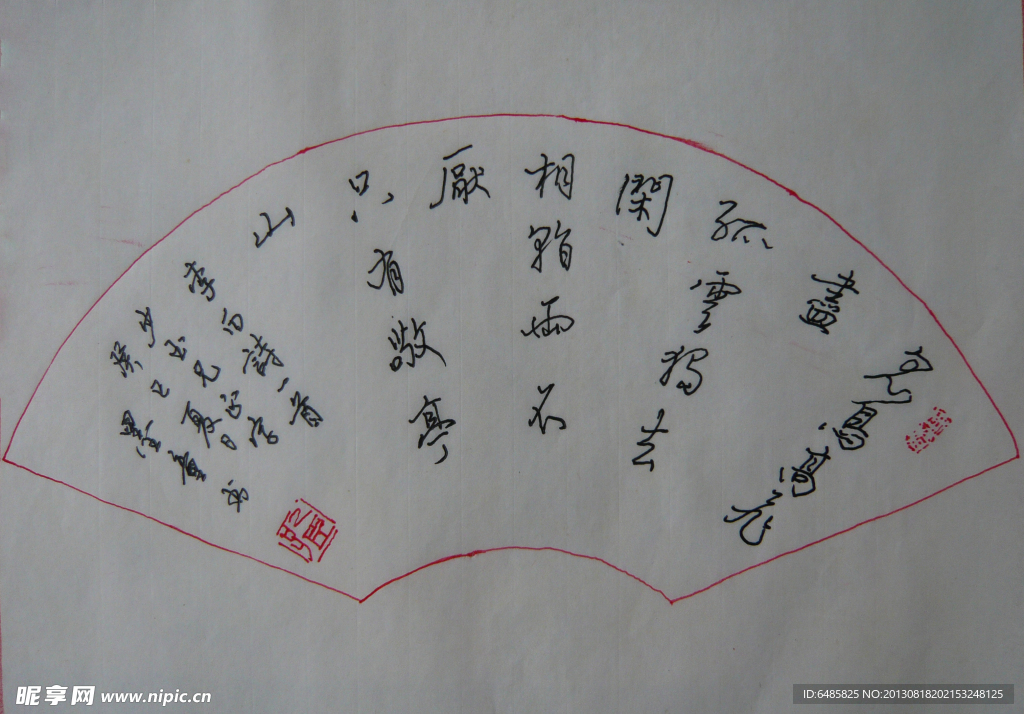 眾鳥高飛
盡
孤雲獨去
閑
相看兩不
厭
只有敬亭
山
李白詩一首
玉兄正字
癸巳夏日
墨童书
昵享网 www.nipic.cn
ID:6485825 NO:20130818202153248125